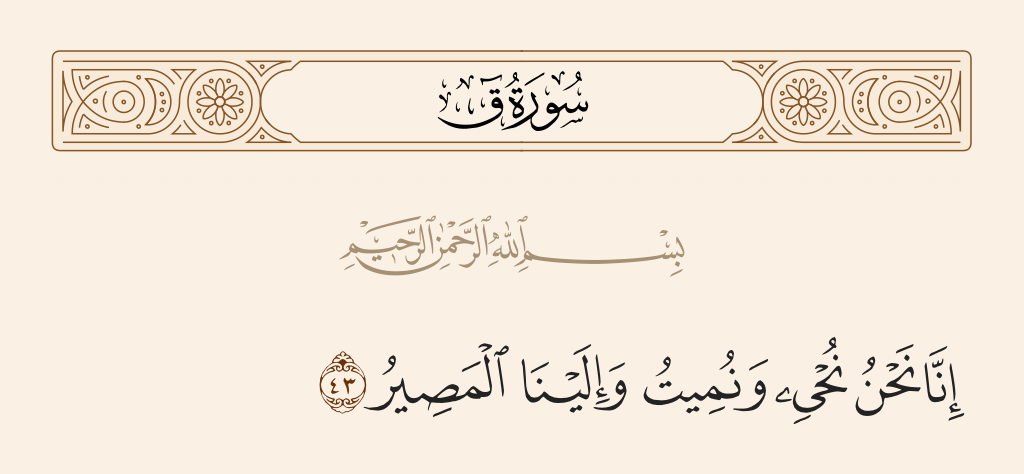 سُورَةُ ق
بِسْمِ ٱللَّهِ ٱلرَّحْمَٰنِ ٱلرَّحِيمِ
إِنَّا نَحْنُ نُحْىِۦ وَنُمِيتُ وَإِلَيْنَا ٱلْمَصِيرُ ٤٣